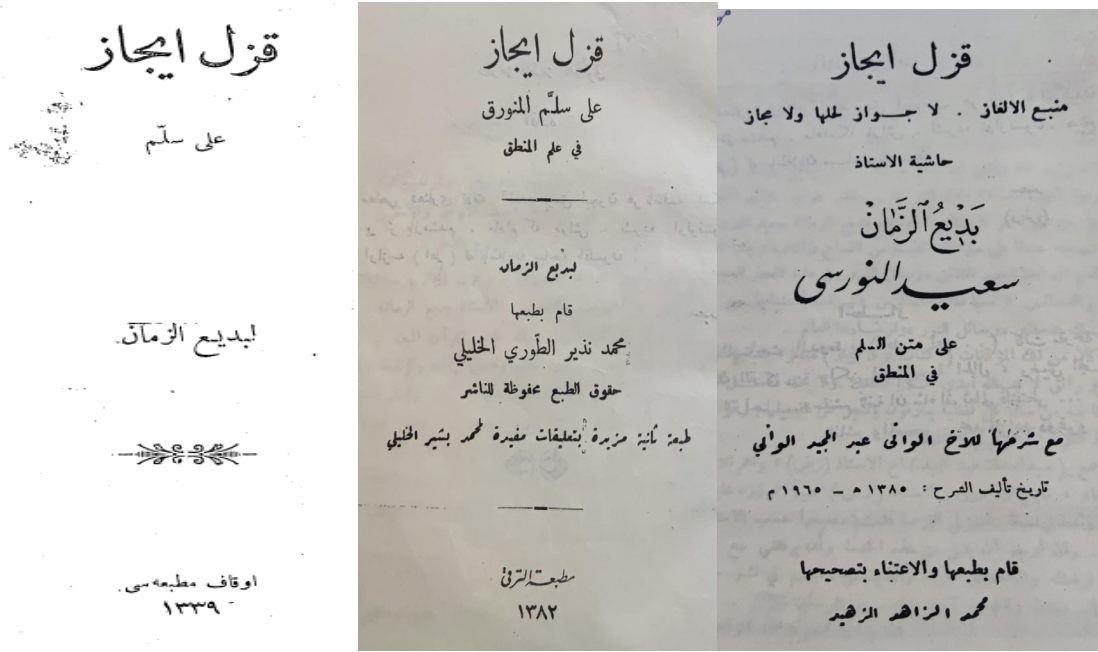 قزل ايجاز
على سلّم
لبديع الزمان
اوقاف مطبعه سى
١٣٣٩
قزل ايجاز
على سلَّم المنورق
في علم المنطق
لبديع الزمان
قام بطبعها
محمد نذير الطّوري الخليلي
حقوق الطبع محفوظة للناشر
طبعة ثانية مزيدة بتعليقات مفيدة لمحمد بشير الخليلي
مطبعة الترقي
١٣٨٢
قزل ايجاز
منبع الالغاز . لا جواز لحلها ولا مجاز
حاشية الاستاذ
بَدِيْعُ ٱلزَّمَانْ
سعيد النورسى
على متن السلم
في المنطق
مع شرحها للاخ الوانى عبد المجيد الواني
تاريخ تأليف الشرح : ١٣٨٥ ه – ١٩٦٥ م
قام بطبعها والاعتناء بتصحيحها
محمد الزاهد الزهيد